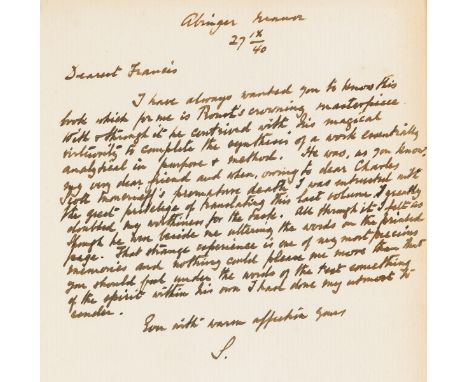 Abinger Manor
27 IX/40
Dearest Francis
I have always wanted you to know this
book which for me is Proust's crowning masterpiece.
With & through it he contrived with his magical
virtuosity to complete the synthesis of a work essentially
analytical in purpose & method. He was, as you know,
my very dear friend and when, owing to dear Charles
Scott Moncrieff's premature death I was intrusted with
the great privilege of translating this last volume I greatly
doubted my worthiness for the task. All through it I felt as
though he were beside me uttering the words on the printed
page. That strange experience is one of my most precious
memories and nothing could please me more than that
you should feel under the words of the text something
of the spirit within his own I have done my utmost to
render.
Ever with warm affection yours
S.